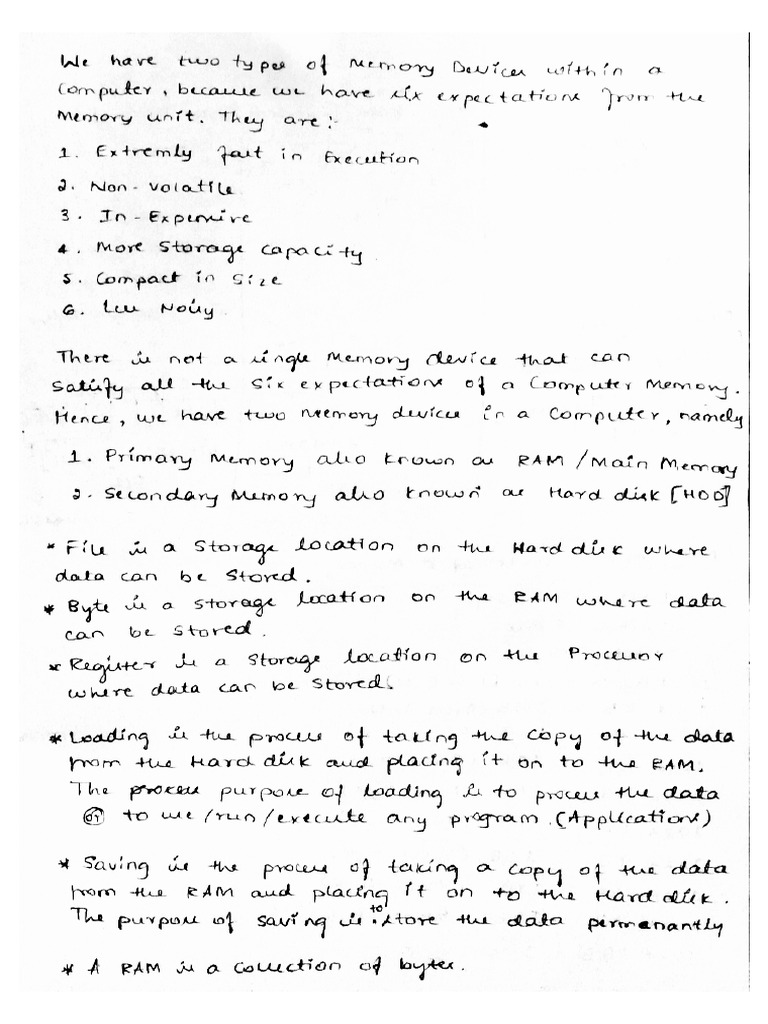 We have two types of Memory Devices within a
Computer, because we have six expectations from the
Memory unit. They are:-
1. Extremly fast in Execution
2. Non-volatile
3. In-Expensive
4. More Storage Capacity
5. Compact in Size
6. Less Noisy.
There is not a single Memory device that can
satisfy all the six expectations of a Computer Memory.
Hence, we have two Memory devices in a Computer, namely
1. Primary Memory also known as RAM/Main Memory
2. Secondary Memory also known as Hard disk [HDD]
* File is a Storage location on the Hard disk where
data can be Stored.
* Byte is a storage location on the RAM where data
can be stored.
* Register is a Storage location on the Processor
where data can be Stored.
* Loading is the process of taking the Copy of the data
from the Hard disk and placing it on to the RAM.
The process purpose of loading is to process the data
or to use/run/execute any program. (Applications)
* Saving is the process of taking a copy of the data
from the RAM and placing it on to the Hard disk.
The purpose of saving is to store the data permenantly
* A RAM is a Collection of bytes.